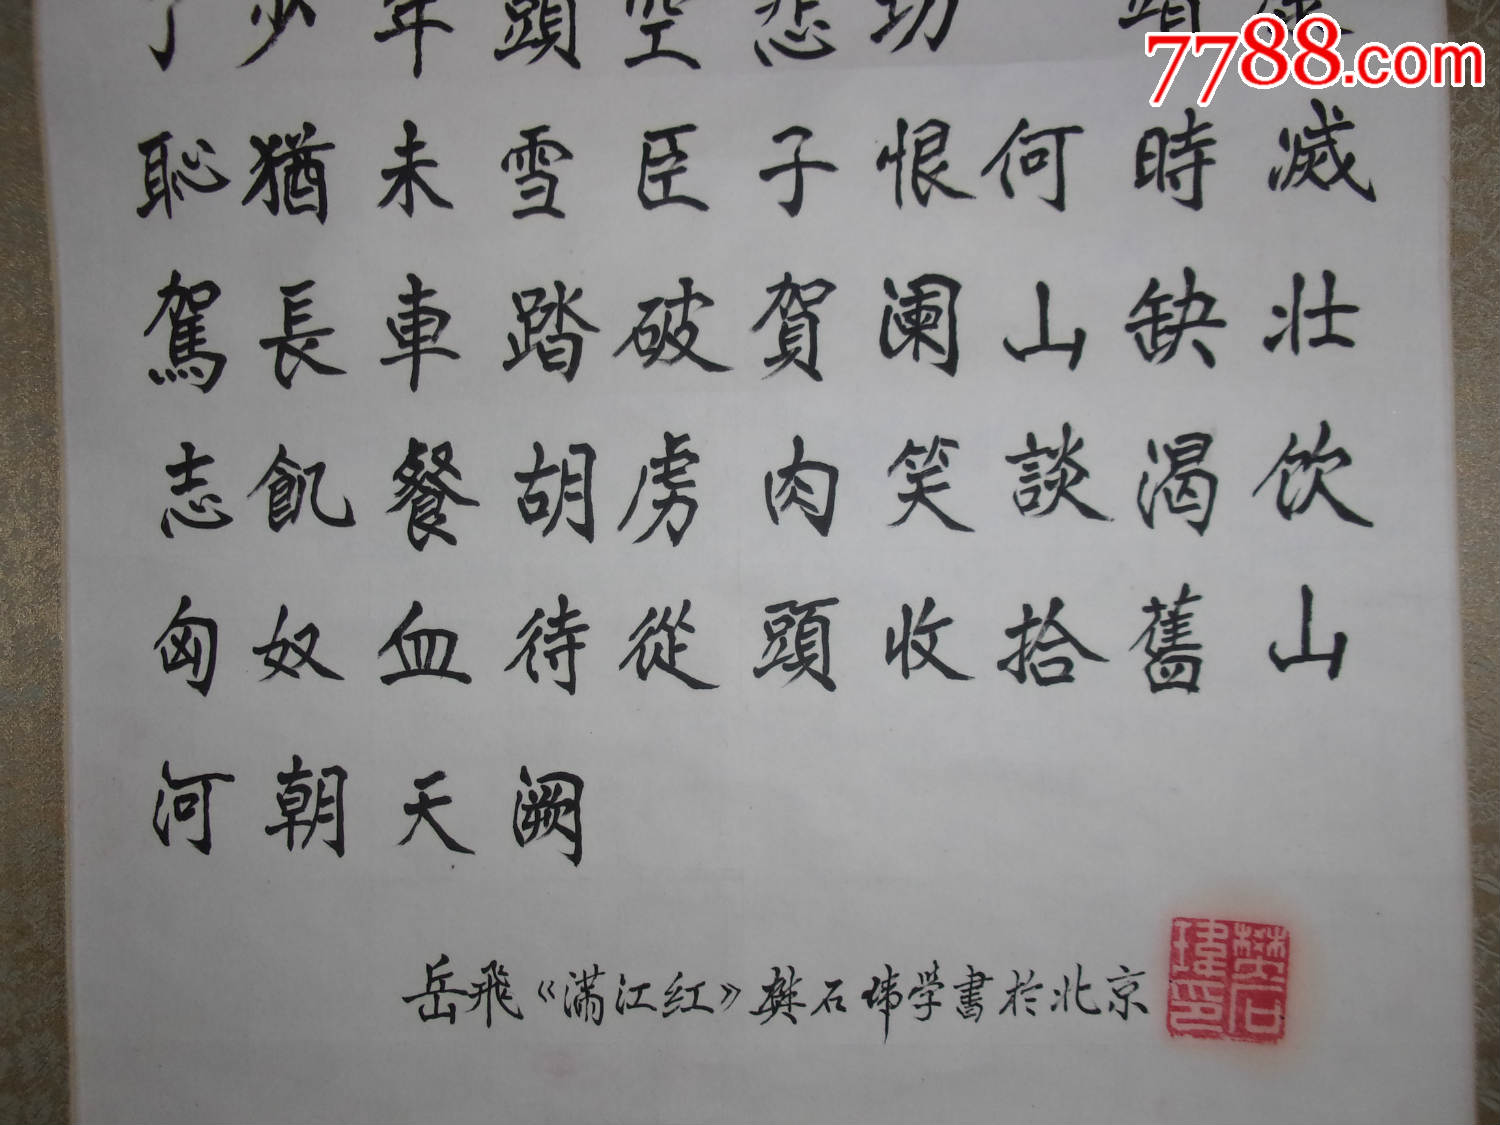 了少年頭空悲切
恥猶未雪臣子恨何時滅
駕長車踏破賀阑山缺壯
志飢餐胡虏肉笑談渴饮
匈奴血待從頭收拾舊山
河朝天阙
岳飛《满江红》樊石玮學書於北京
樊石瑋印
7788.com